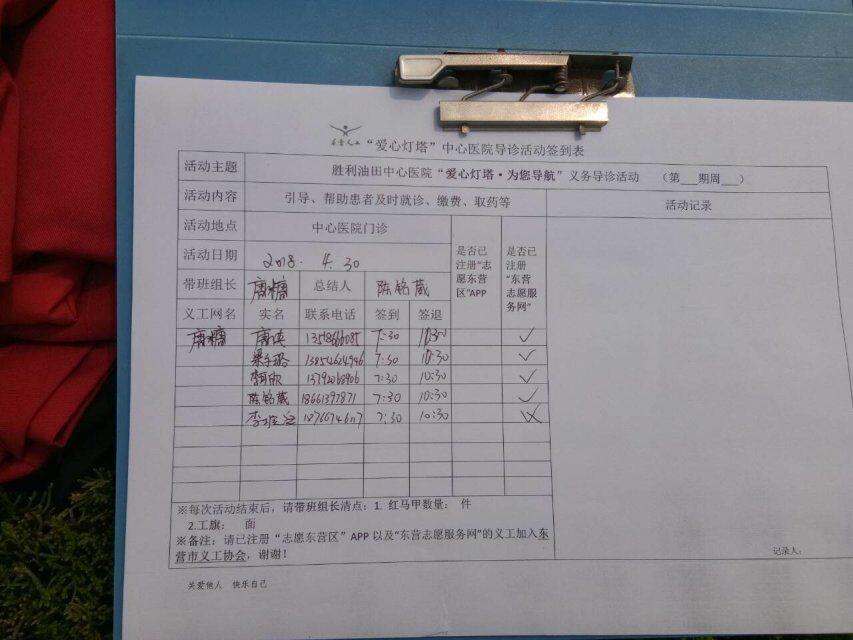 “爱心灯塔”中心医院导诊活动签到表
活动主题 胜利油田中心医院“爱心灯塔·为您导航”义务导诊活动 (第___期周___)
活动内容 引导、帮助患者及时就诊、缴费、取药等 活动记录
活动地点 中心医院门诊 是否已注册“志愿东营区”APP 是否已注册“东营志愿服务网”
活动日期 2018. 4. 30
带班组长 唐糖 总结人 陈铭葳
义工网名 实名 联系电话 签到 签退
唐糖 唐瑛 7:30 10:30 ✓
7:30 10:30 ✓
7:30 10:30 ✓
陈铭葳 18661397871 7:30 10:30 ✓
7:30 10:30
※每次活动结束后,请带班组长清点:1. 红马甲数量: 件
2.工旗: 面
※备注:请已注册“志愿东营区”APP 以及“东营志愿服务网”的义工加入东
营市义工协会,谢谢!
记录人:
关爱他人 快乐自己